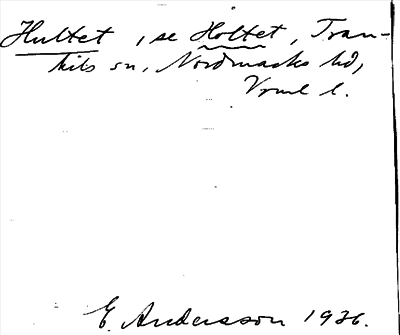 Hultet, se Holtet, Tran-
kils sn, Nordmarks hd,
Vrml l.
E. Andersson 1936.